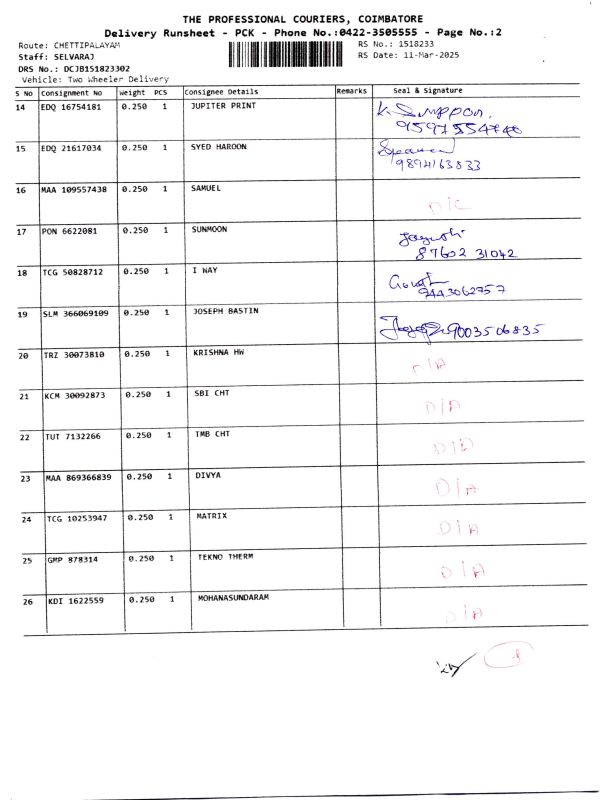 THE PROFESSIONAL COURIERS, COIMBATORE
Delivery Runsheet - PCK - Phone No.:0422-3505555 - Page No.:2
Route: CHETTIPALAYAM RS No.: 1518233
Staff: SELVARAJ RS Date: 11-Mar-2025
DRS No.: DCJB151823302
Vehicle: Two Wheeler Delivery
S No Consignment No Weight PCS Consignee Details Remarks Seal & Signature
14 EDQ 16754181 0.250 1 JUPITER PRINT
15 EDQ 21617034 0.250 1 SYED HAROON
9894163833
16 MAA 109557438 0.250 1 SAMUEL D/C
17 PON 6622081 0.250 1 SUNMOON
87602 31042
18 TCG 50828712 0.250 1 I WAY
9443062757
19 SLM 366069109 0.250 1 JOSEPH BASTIN 9003506835
20 TRZ 30073810 0.250 1 KRISHNA HW
21 KCM 30092873 0.250 1 SBI CHT D/A
22 TUT 7132266 0.250 1 TMB CHT D/A
23 MAA 869366839 0.250 1 DIVYA D/A
24 TCG 10253947 0.250 1 MATRIX D/A
25 GMP 878314 0.250 1 TEKNO THERM D/A
26 KDI 1622559 0.250 1 MOHANASUNDARAM D/A